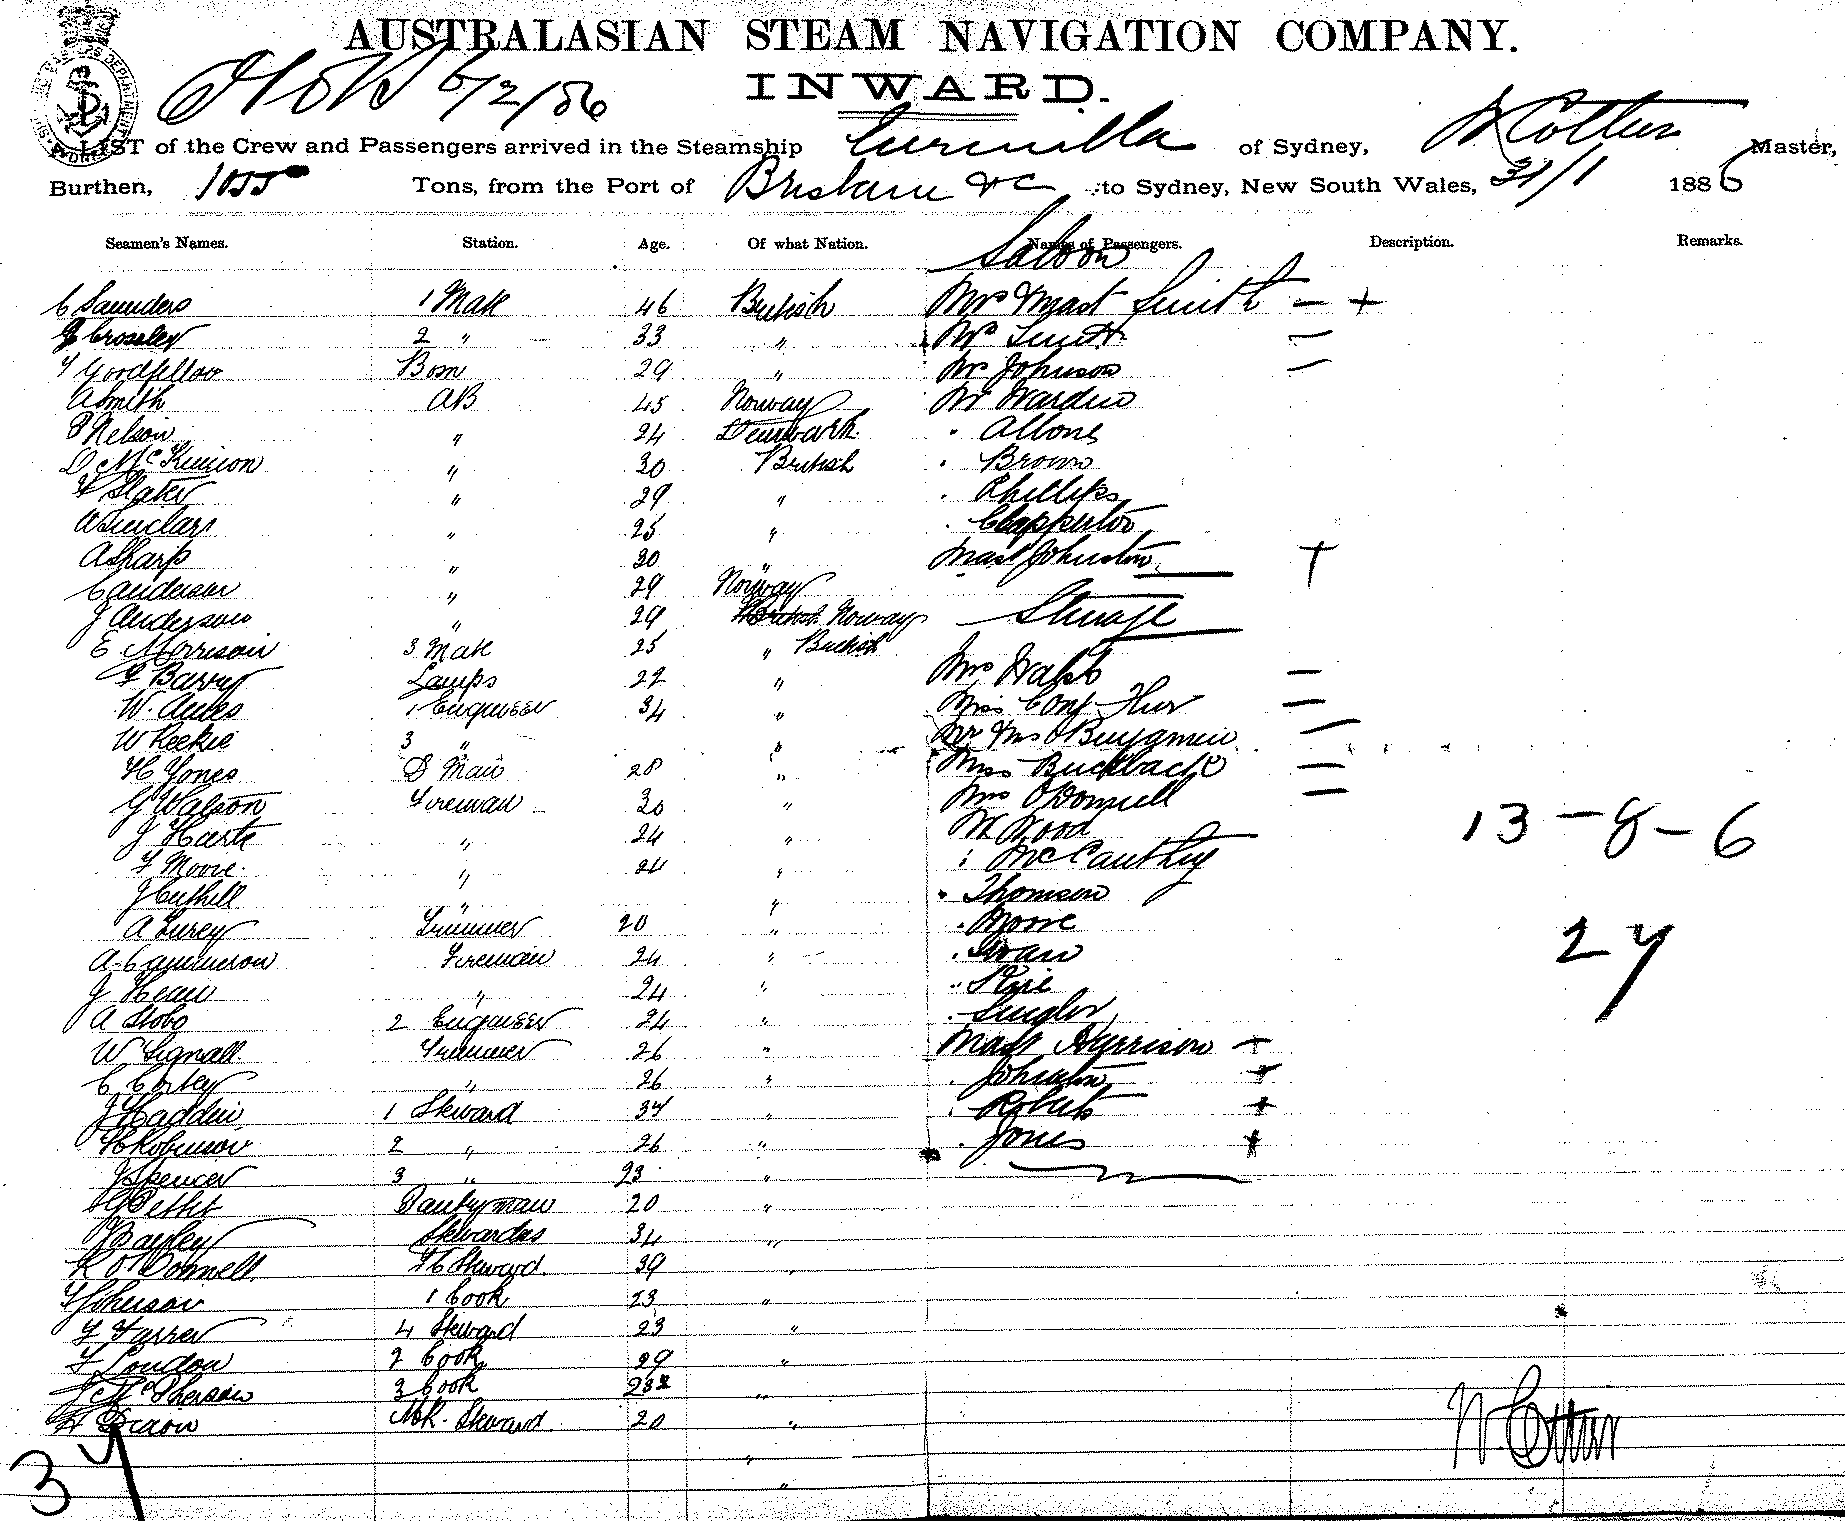 AUSTRALASIAN STEAM NAVIGATION COMPANY.
INWARD.
6/2/86
A LIST of the Crew and Passengers arrived in the Steamship Gunnilla of Sydney, W Cottier Master,
Burthen, 1055 Tons, from the Port of Brisbane &c to Sydney, New South Wales, 31/1 1886
Seamen's Names. Station. Age. Of what Nation. Names of Passengers. Description. Remarks.
Saloon
C Saunders 1 Mate 46 British Mrs & Mast Smith — +
Crossley 2 " 33 " Mrs Smith —
Goodfellow Bosn 29 " Mr Johnson —
A Smith AB 45 Norway Mr Warden
P Nelson " 24 Denmark " Albone
D McKinnon " 30 British " Brown
Slater " 29 " " Phillips
A Sinclair " 25 " " Clapperton
A Sharp " 30 " Mast Johnston +
C Anderson " 29 Norway
J Anderson " 29 British Norway Steerage
E Morrison 3 Mate 25 " British
Barry Lamps 22 " Mrs Walsh —
W. Ames 1 Engineer 34 " Miss —
W Reekie 3 " " Mr & Mrs Benjamin —
H Jones D Man 28 " Miss Buckbach —
G Watson Fireman 30 " Mrs O'Donnell —
J Harte " 24 " Mr Wood
13 - 8 - 6
F Moore " 24 " " McCauthy
J Cuthill " " " Thomson
A Furey Trimmer 20 " " Moore
27
A. Cammeron Fireman 24 " " Swan
J Kean " 24 "
A Stobo 2 Engineer 24 "
W Signall Trimmer 26 " Mast Harrison +
C Corley " 26 " " Johnston +
J Haddin 1 Steward 34 " " Roberts +
H Robinson 2 " 26 " " Jones +
J Spencer 3 " 23 "
G Pettit Pantryman 20 "
Bayley Stewardess 34 "
K O'Donnell FC Steward 39 "
1 Cook 23 "
F Farrer 4 Steward 23 "
F London 2 Cook 29 "
J McPherson 3 Cook 23 "
Steward 20 "
37
W Cottier